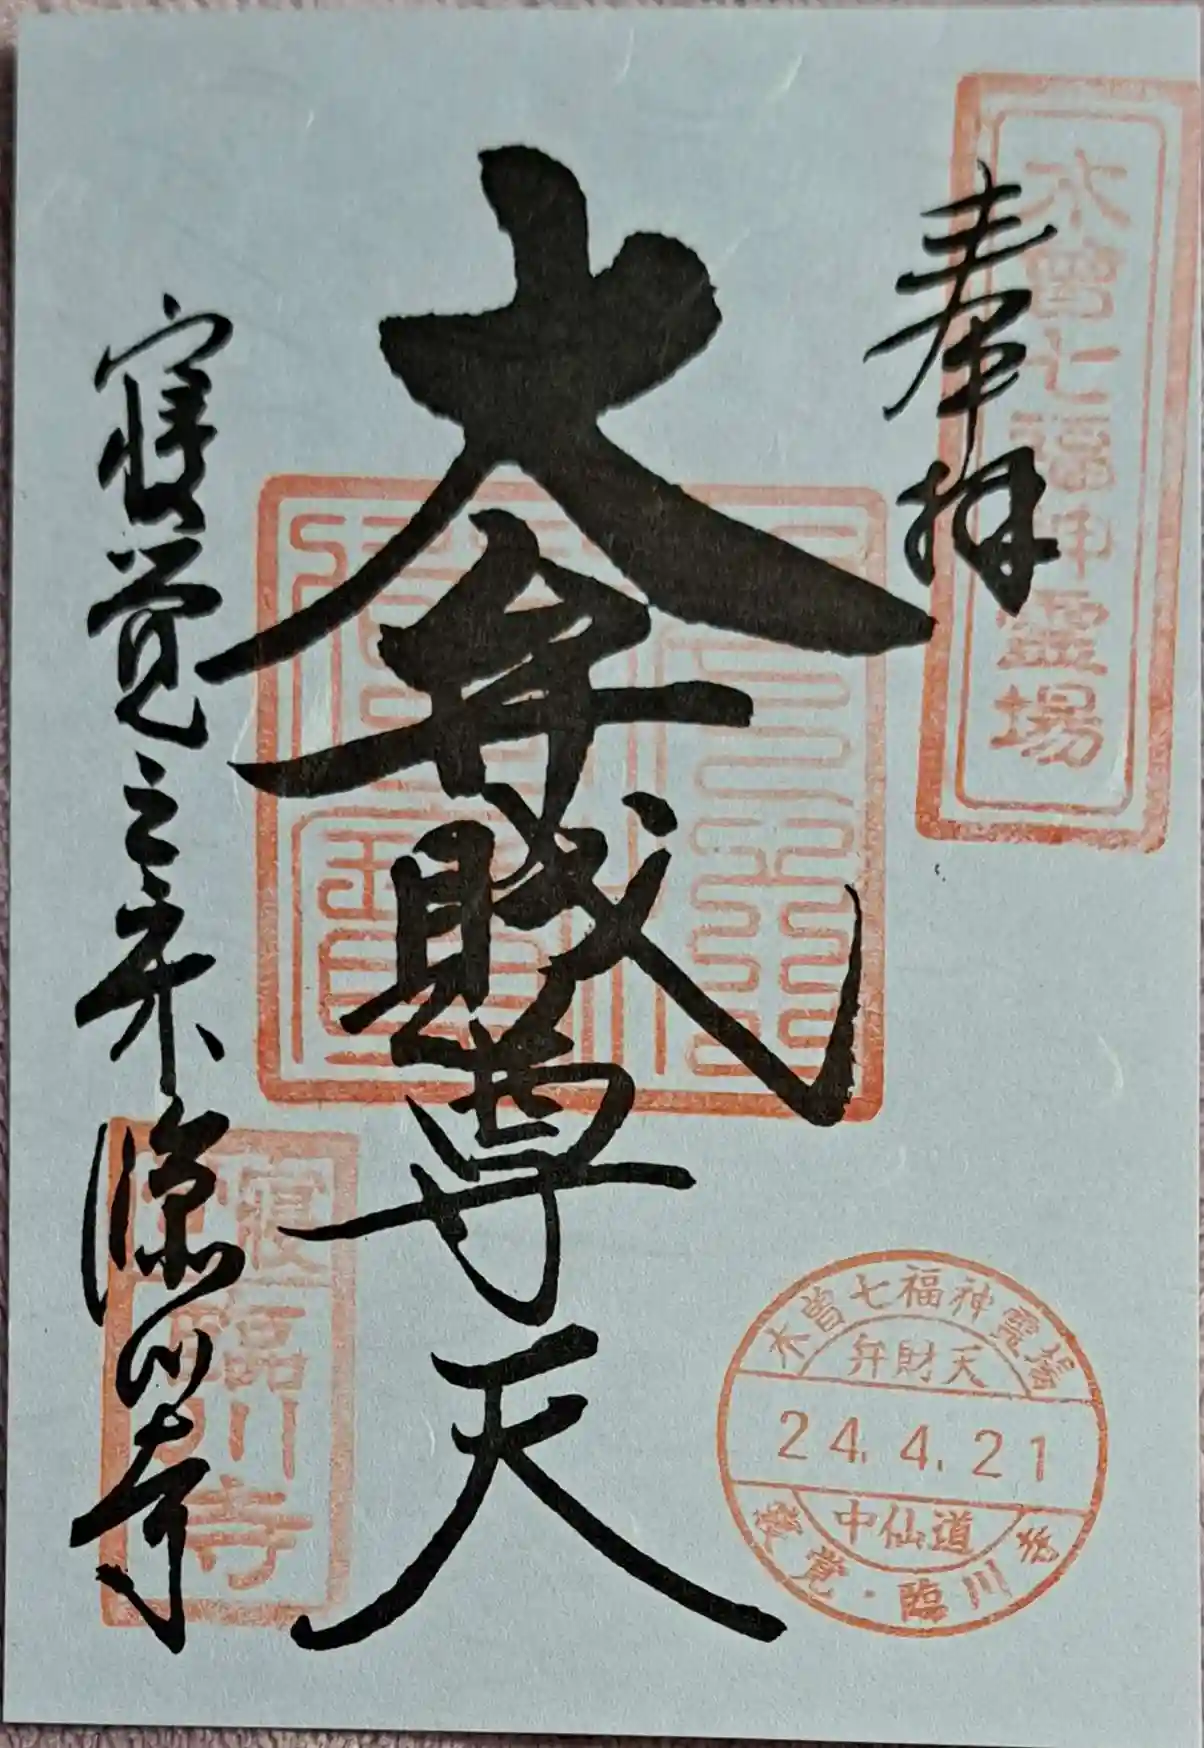 木曽七福神霊場
奉拝
大弁財尊天
寝覚之床
臨川寺
寝覚
臨川寺
木曽七福神霊場
弁財天
24.4.21
中仙道
寝覚・臨川寺